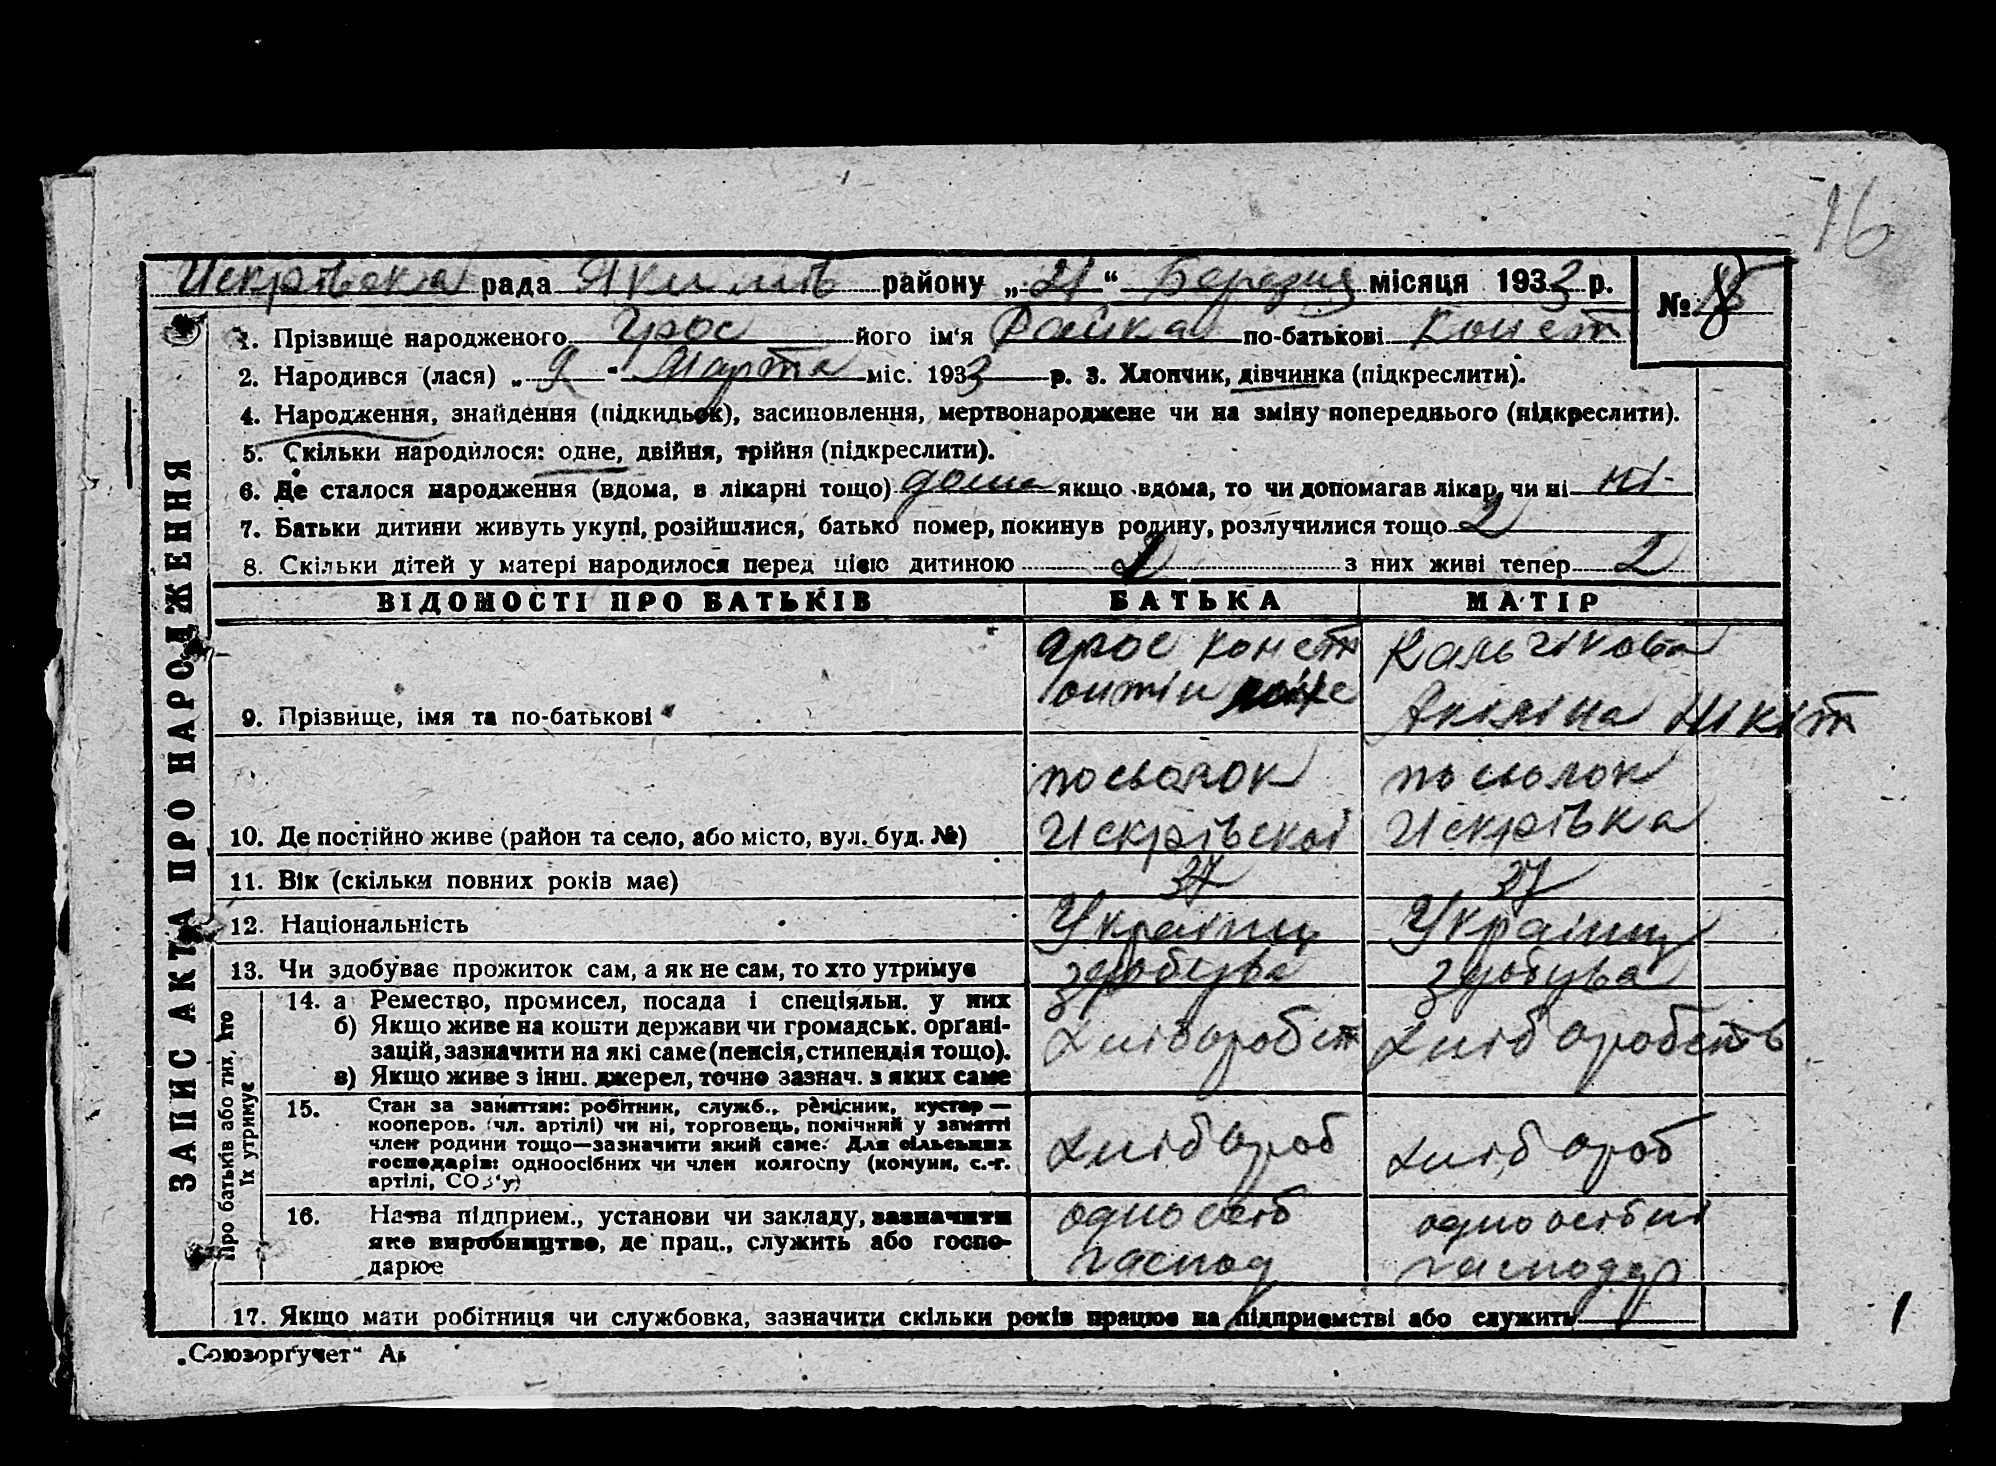 16
Искрівска рада Якимів району „21“ Березня місяця 1933 р. № 8
1. Прізвище народженого Грос його ім'я Раїка по-батькові Конст
2. Народився (лася) „9“ Марта міс. 1933 р. 3. Хлопчик, дівчинка (підкреслити).
4. Народження, знайдення (підкидьок), засиновлення, мертвонароджене чи на зміну попереднього (підкреслити).
5. Скільки народилося: одне, двійня, трійня (підкреслити).
6. Де сталося народження (вдома, в лікарні тощо) дома якщо вдома, то чи допомагав лікар, чи ні ні
7. Батьки дитини живуть укупі, розійшлися, батько помер, покинув родину, розлучилися тощо 2
8. Скільки дітей у матері народилося перед цією дитиною з них живі тепер 2
ЗАПИС АКТА ПРО НАРОДЖЕННЯ
ВІДОМОСТІ ПРО БАТЬКІВ БАТЬКА МАТІР
Грос Конст Кальчікова
онтін Акіліна Нікіт
9. Прізвище, імя та по-батькові
посьолок посьолок
Искрівскоі Искрівка
10. Де постійно живе (район та село, або місто, вул. буд. №)
11. Вік (скільки повних років має) 37 37
12. Національність Украінц Украінц
13. Чи здобуває прожиток сам, а як не сам, то хто утримує здобува здобува
Про батьків або тих, хто їх утримує
14. а Ремество, промисел, посада і спеціяльн. у них
б) Якщо живе на кошти держави чи громадськ. орґані-
зацій, зазначити на які саме (пенсія, стипендія тощо). хліборобст хліборобств
в) Якщо живе з інш. джерел, точно зазнач. з яких саме
15. Стан за заняттям: робітник, служб., ремісник, кустар —
кооперов. (чл. артілі) чи ні, торговець, помічний у занятті
член родини тощо—зазначити який саме. Для сільських хлібороб хлібороб
господарів: одноосібних чи член колгоспу (комуни, с.-г.
артілі, СОЗ'у)
16. Назва підприєм., установи чи закладу, зазначити одноосіб одноосібні
яке виробництво, де прац., служить або госпо-
дарює господ господар
17. Якщо мати робітниця чи службовка, зазначити скільки років працює на підприємстві або служить
„Союзорґучет“